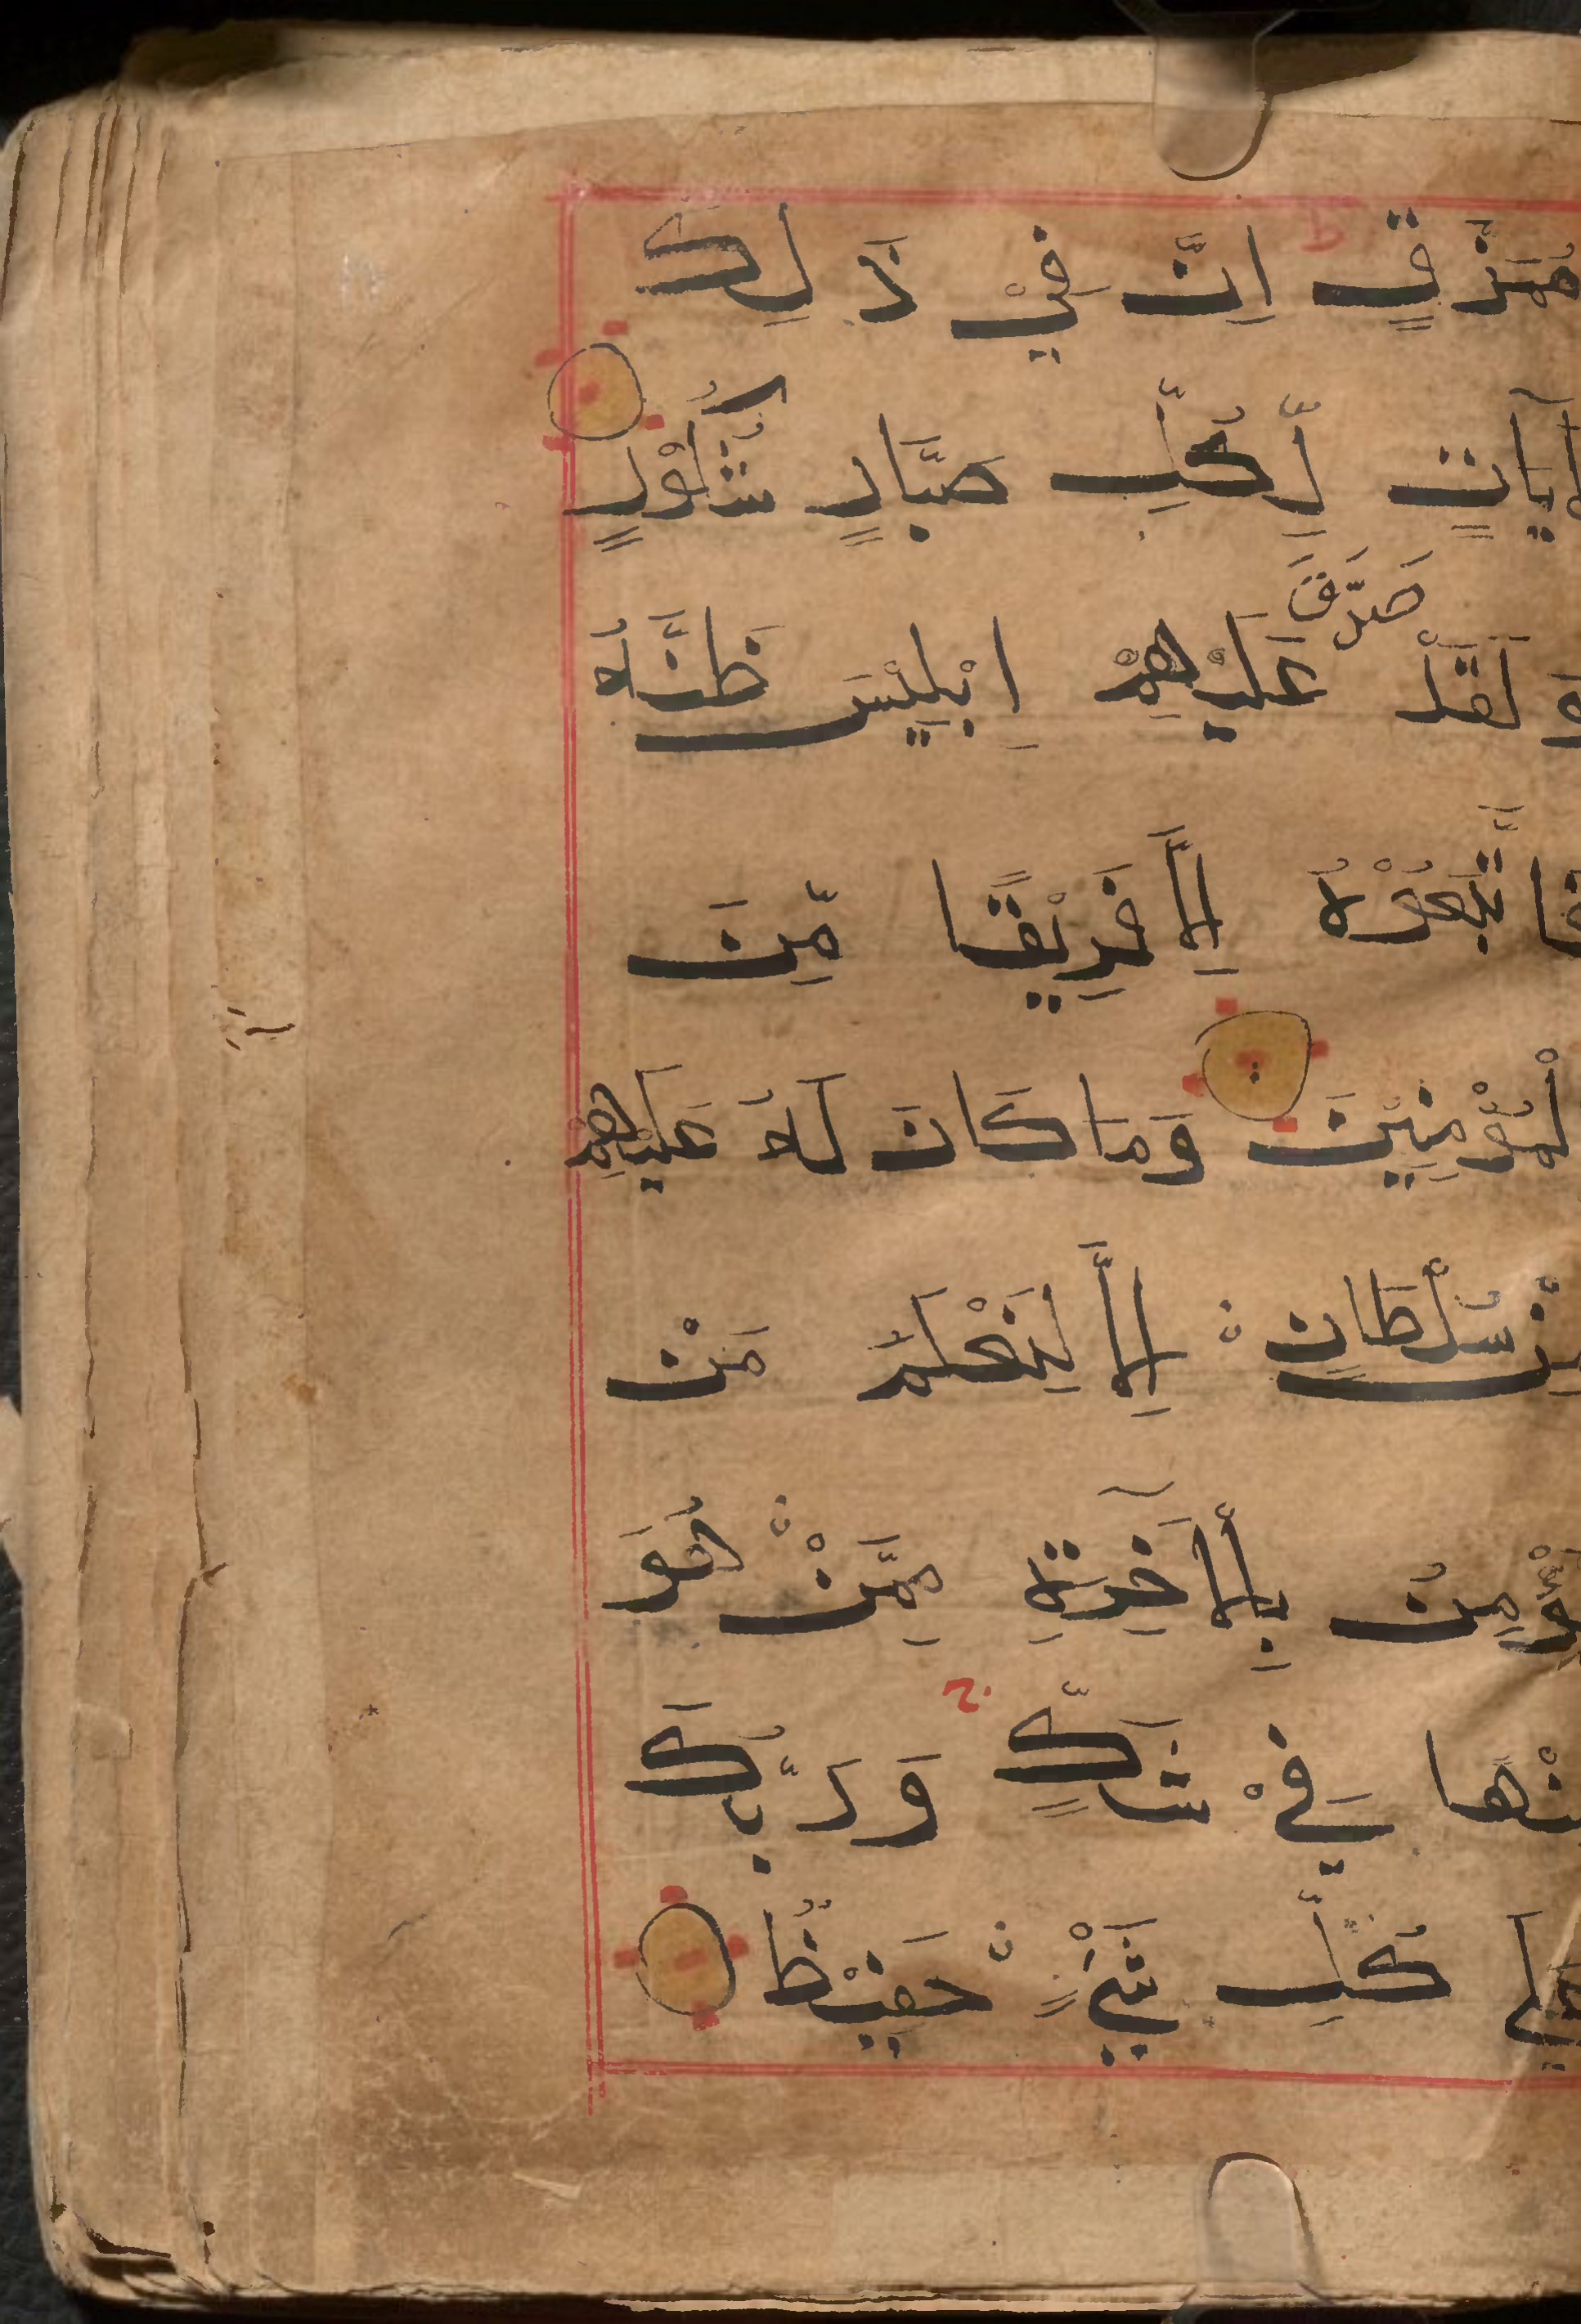 مُمَزَّقٍ اِنَّ فِيْ ذَ لِكَ
لَاٰيَاتٍ لِّكُلِّ صَبَّارٍ شَكُوْرٍ
وَ لَقَدْ صَدَّقَ عَلَيْهِمْ اِبْلِيْسُ ظَنَّهُ
فَا تَّبَعُوْهُ اِلَّا فَرِيْقًا مِّنَ
لْمُؤْمِنِيْنَ وَمَا كَانَ لَهُ عَلَيْهِمْ
مِنْ سُلْطَانٍ اِلَّا لِنَعْلَمَ مَنْ
يُؤْمِنُ بِالْاٰخِرَةِ مِمَّنْ هُوَ
مِنْهَا فِيْ شَكٍّ وَرَبُّكَ
عَلٰي كُلِّ شَيْءٍ حَفِيْظٌ